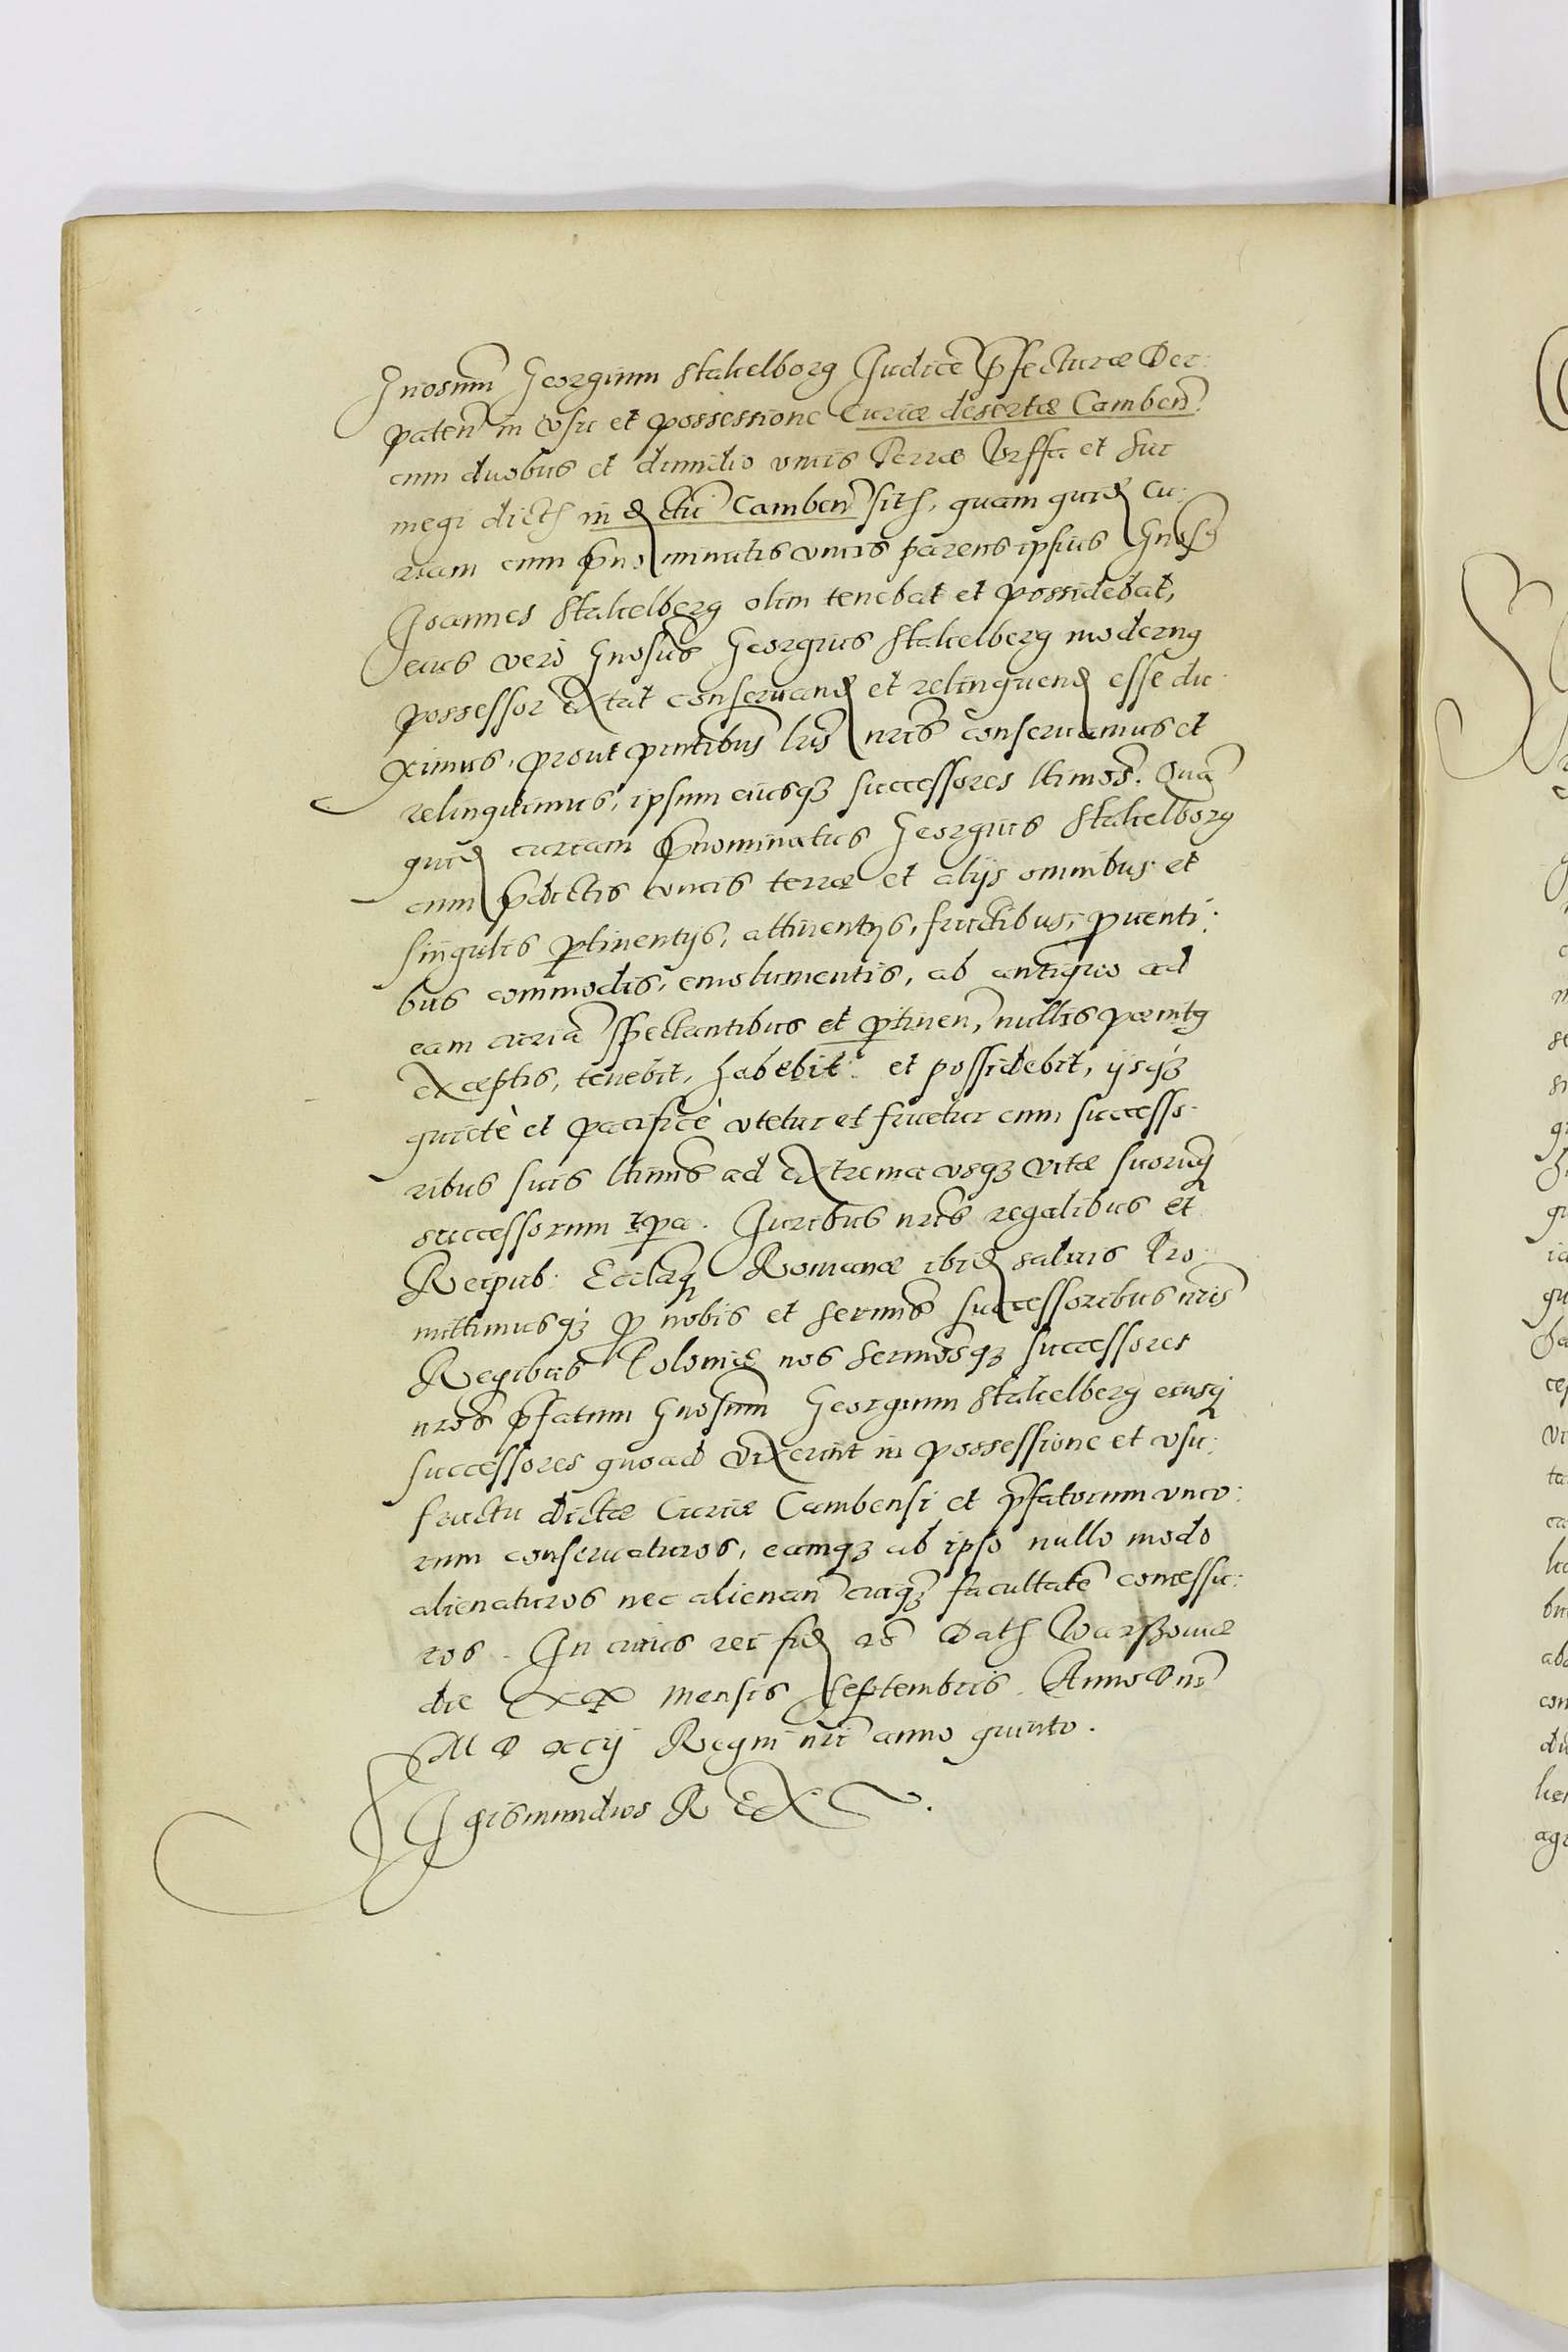 Gnosum Georgium Stakelborg Judice Pfecturæ Der:
paten in Vsu et possessione Curiæ desertæ Camben.
cum duobus et dimidio vncis Terræ Vrssa et Sur
megi dict in dctu Camben sit, quam quid cu:
riam cum pnominatis vncis parens ipsius Gnosq
Joannes Stakelberg olim tenebat et possidebat,
eius vero Gnosus Georgius Stakelberg modernq
possessor extat conseruand et relinquend esse du:
ximus, prout pntibus lris nris conseruamus et
relinquimus, ipsum eiusq3 successores ltimos. Qua
quid curiam Pnominatus Georgius Stakelborg
cum pdictis vncis terræ et alijs omnibus et
singulis ptinentijs, attinentijs, fructibus, prouenti:
bus commodis, emolumentis, ab antiquo ad
eam curia spectantibus et ptinen, nullis pœnitq
exceptis, tenebit, habebit et possidebit, ijsq3
quietè et pacificè vtetur et fruetur cum successo:
ribus suis ltimis ad extrema vsq3 vitæ suorumq
successorum tpa. Juribus nris regalibus et
Reipub: Ecclæq Romanæ ibid saluis Pro:
mittimusq3 p nobis et sermis successoribus nris
Regibus Poloniæ nos sermosq3 successores
nros pfatum Gnosum Georgium Stakelberg eiusq
successores quoad vixerint in possessione et vsu:
fructu dictæ Curiæ Cambensi et pfatorum vnco:
rum conseruaturos, eamq3 ab ipso nullo modo
alienaturos nec alienan cuiq3 facultate concessu:
ros. In cuius rei fid rs Dat Warszouiæ
die XX Mensis Septembris. Anno Dni
M D xcij Regni nri anno quinto.
Sigismundus R EX.